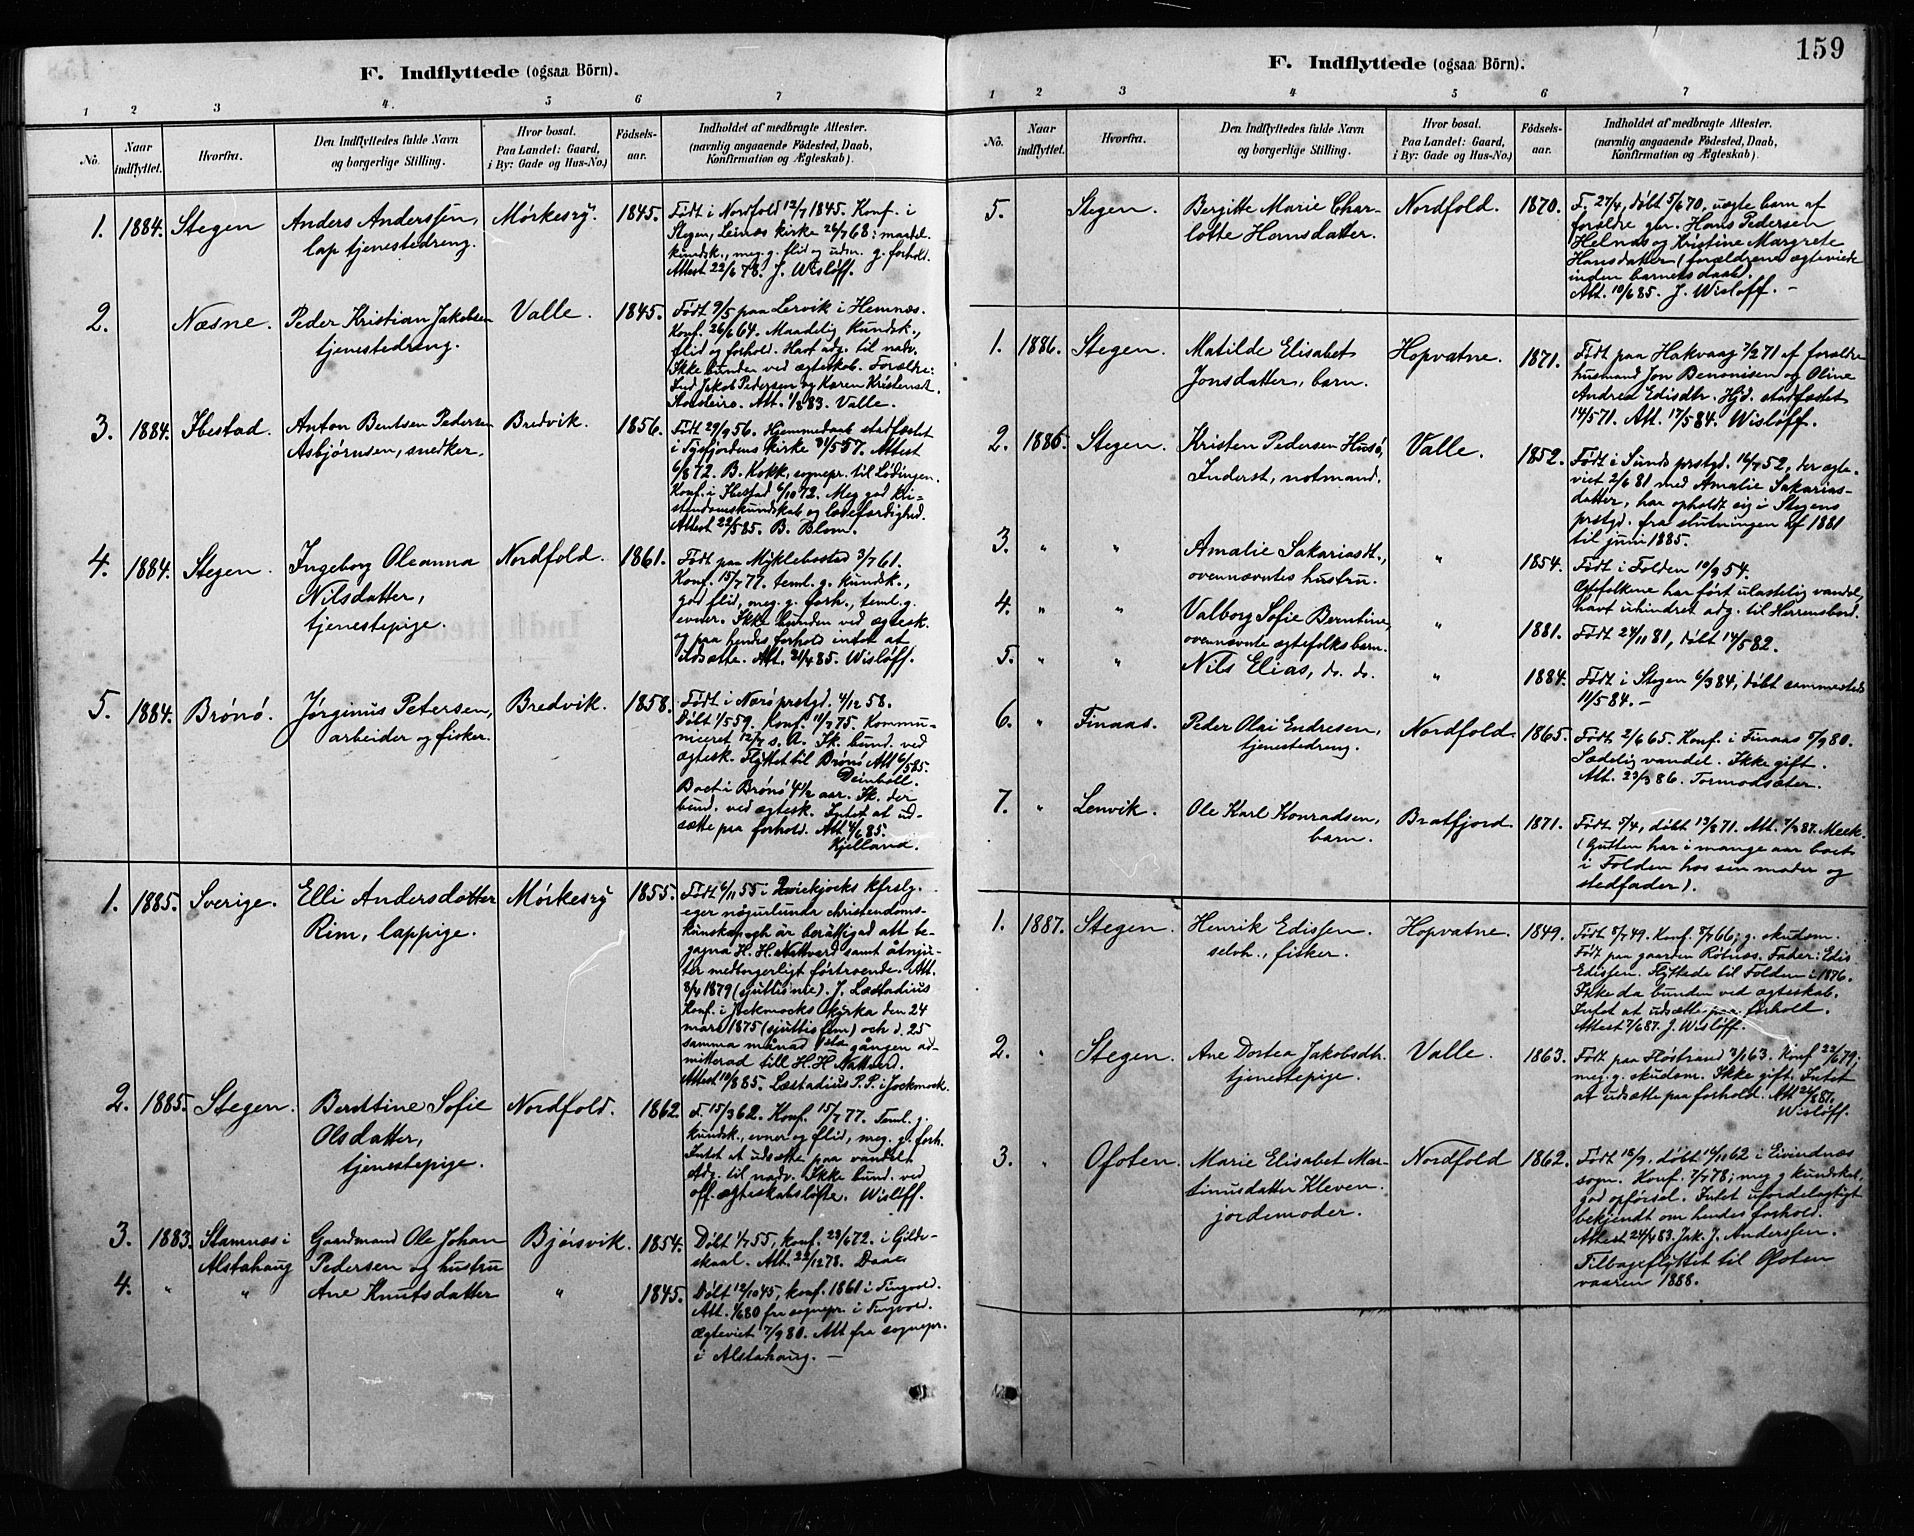 F. Indflyttede (ogsaa Börn).
1 2 3 4. 5 6 7
No. Naar indflyttet. Hvorfra. Den Indflyttedes fulde Navn og borgerlige Stilling. Hvor bosat. Paa Landet: Gaard, i By: Gade og Hus-No.) Födsels-aar. Indholdet af medbragte Attester. (navnlig angaaende Födested, Daab, Konfirmation og Ægteskab).
1. 1884. Stegen Anders Anderssen, Mørkesry. 1845. Født i Nordfold 12/7 1845. Konf. i
lap tjenestedreng. Stegen, Leines kirke 26/7 68: maadel.
kundsk., meg. g. flid og udm. g. forhold.
Attest 22/6 78. J. Wisløff.
2. Næsne. Peder Kristian Jakobsen Valle. 1845. Født 9/5 paa Lervik i Hemnæs.
tjenestedreng. Konf. 26/6 64. Maadelig kundsk.,
flid og forhold. Havt adg. til nadv.
Ikke bunden ved ægteskab. Forældre:
Ind. Jakob Pedersen og Karen Kristensd.
Att. 1/8 83. Valle.
3. 1884. Ibestad. Anton Bentsen Pedersen Bredvik 1856. Født 29/9 56. Hjemmedaab stadfæstet
Asbjørnsen, snedker. i Tysfjordens kirke 31/5 57. Attest
6/8 72. B. Kokk, sognepr. til Lødingen.
Konf. i Ibestad 6/10 72. Meg. god kri-
stendomskundskab og læsefærdighed.
Attest 22/5 85. B. Blom.
4. 1884. Stegen. Ingeborg Oleanna Nordfold. 1861. Født paa Myklebostad 3/7 61.
Nilsdatter, Konf. 15/7 77. teml. g. kundsk.,
tjenestepige. god flid, meg. g. forh., teml. g.
evner. Ikke bunden ved ægtesk.
og paa hendes forhold intet at
udsætte. Att. 21/4 85. Wisløff.
5. 1884. Brønø. Jørginus Petersen, Bredvik. 1858. Født i Nærø prstgd. 4/12 58.
arbeider og fisker. Døbt 1/5 59. Konf. 11/7 75. Kommu-
niceret 12/7 s. A. Ik. bund. ved
ægtesk. Flyttet til Brønø Att 6/5 85.
Deinbøll.
Boet i Brønø 4 1/2 aar. Ik. der
bund. ved ægtesk. Intet at ud-
sætte paa forhold. Att 4/6 85.
Kjelland.
1. 1885. Sverige. Elli Andersdatter Mørkesry 1855. Født 6/11 55 i Qvickjocks Kfrslg.
Rim, lappige. eger nøgurlunda christendoms-
kunskap och är berättigad att be-
gagna H. H. Nattvard samt åtnju-
ter medborgerligt förtroende. Att.
8/4 1879 (sjuttisnie). J. Læstadius
Konf. i Jockmocks Kyrka den 24
mars 1875 (sjuttis fem) och d. 25
samma månad 1sta gången ad-
mitterad till H. H Nattvard.
Attest 10/8 85. Læstadius P. P. i Jockmock.
2. 1885. Stegen. Berdtine Sofie Nordfold. 1862. F. 15/3 62. Konf. 15/7 77. Teml. g.
Olsdatter, kundsk., evner og flid, meg. g. forh.
tjenestepige. Intet at udsætte paa vandel.
Adg. til nadv. Ikke bund. ved
off. ægteskabsløfte. Wisløff.
3. 1883. Stamnæs i Gaardmand Ole Johan Bjørsvik. 1854. Døbt 1/7 55, konf. 23/6 72. i Gilde-
Alstahaug Pedersen og hustru skaal. Att. 22/12 78. Daae
4. " " Ane Knutsdatter " 1845. Døbt 12/10 45, konf. 1861 i Tingvold.
Att. 1/6 80 fra sognepr. i Tingvold.
Ægteviet 7/9 80. Att fra sognepr.
i Alstahaug. —
F. Indflyttede (ogsaa Börn). 159
1 2 3 4 5 6 7
No. Naar indflyttet. Hvorfra. Den Indflyttedes fulde Navn og borgerlige Stilling. Hvor bosat. Paa Landet: Gaard, i By: Gade og Hus-No.) Födsels-aar. Indholdet af medbragte Attester. (navnlig angaaende Födested, Daab, Konfirmation og Ægteskab).
5. Stegen. Bergitte Marie Char- Nordfold. 1870. F. 27/4, døbt 5/6 70, uægte barn af
lotte Hansdatter. forældre gbr. Hans Pedersen
Helnæs og Kristine Margrete
Hansdatter (forældrene ægteviede
inden barnets daab).
Att. 10/6 85. J. Wisløff. —
1. 1886. Stegen. Matilde Elisabet Hopvatne. 1871. Født paa Hakvaag 7/2 71 af forældre
Jonsdatter, barn. husmand Jon Benonisen og Oline
Andrea Edisdtr. Hjd. stadfæstet
14/5 71. Att. 17/5 84. Wisløff.
2. 1886. Stegen. Kristen Pedersen Husø, Valle. 1852. Født i Sunds prstgd. 16/7 52, der ægte-
Inderst, notmand. viet 2/6 81 med Amalie Sakarias-
datter, har opholdt sig i Stegens
prstgd. fra slutningen af 1881
til juni 1885.
3. " " Amalie Sakariasdt., " 1854. Født i Folden 10/9 54.
ovennævntes hustru. Ægtefolkene har ført ulastelig vandel,
havt uhindret adg. til Herrensbord.
4. " " Valborg Sofie Berntine, " 1881. Født 24/11 81, døbt 14/5 82.
ovennævnte ægtefolks barn.
5. " " Nils Elias, do. do. " 1884. Født i Stegen 6/3 84, døbt sammesteds
11/5 84. —
6. " Finaas. Peder Olai Endresen, Nordfold. 1865. Født 2/6 65. Konf. i Finaas 5/9 80.
tjenestedreng. Sædelig vandel. Ikke gift.
Att. 23/3 86. Tormodsæter.
7. " Lenvik. Ole Karl Konradsen, Bratfjord. 1871. Født 5/4, døbt 13/8 71. Att. 7/3 87. Meek.
barn. (Gutten har i mange aar boet
i Folden hos sin moder og
stedfader).
1. 1887. Stegen. Henrik Edissen. Hopvatne. 1849. Født 5/7 49. Konf. 8/7 66; g. skudsm.
selvh., fisker. Født paa gaarden Røtnæs. Fader: Edis
Edissen. Flyttede til Folden i 1876.
Ikke da bunden ved ægteskab.
Intet at udsætte paa forhold.
Attest 7/6 87. J. Wisløff.
2. " Stegen. Ane Dortea Jakobsdtr. Valle. 1863. Født paa Fløstrand 3/1 63. Konf 22/6 79;
tjenestepige. meg. g. skudsm. Ikke gift. Intet
at udsætte paa forhold. Att 24/8 87.
Wisløff.
3. " Ofoten. Marie Elisabet Mar- Nordfold 1862. Født 18/9, døbt 16/11 62 i Eivindnæs
tinusdatter Kleven. sogn. Konf. 7/7 78; meg g kundskab,
jordemoder. god opførsel. Intet ufordelagtigt
bekjendt om hendes forhold.
Attest 24/4 83. Jak. J. Anderssen.
Tilbageflyttet til Ofoten
vaaren 1888.